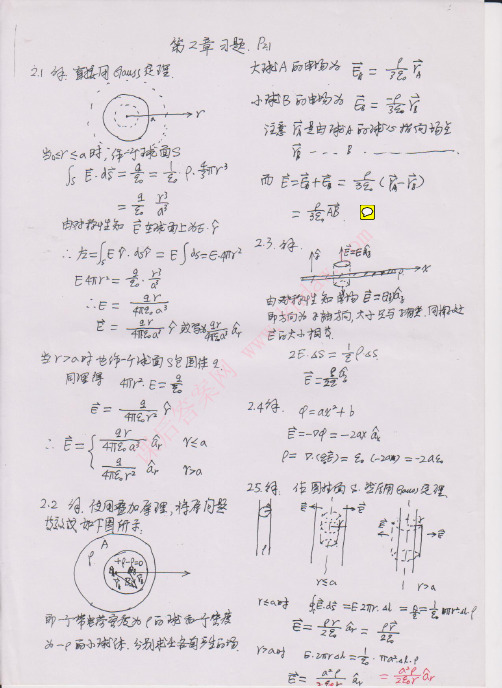 第2章习题. P31
2.1 解. 直接用Gauss定理.
a
r
当0≤r≤a时,作一个球面S
∫s E·ds = q/ε0 = 1/ε0 · ρ · 4/3 πr³
= q/ε0 r³/a³
由对称性知 E在球面上为E·r̂
∴ 左=∫s E r̂·ds r̂ = E∫ds = E·4πr²
E4πr² = q/ε0 · r³/a³
∴E = qr/4πε0a³
E = qr/4πε0a³ r̂ 或写为 qr/4πε0a³ âr
当r>a时 也作一个球面S包围住q.
同理得 4πr² E = q/ε0
E = q/4πε0r² r̂
∴ E = { qr/4πε0a³ âr r≤a
q/4πε0r² âr r>a
2.2 解. 使用叠加原理,将原问题
如下图所示:
A
ρ
+ρ-ρ=0
即一个带电荷密度为ρ的球和一个密度
为-ρ的小球体.分别求出各自产生的场.
大球A的电场为 EA = ρ/3ε0 rA
小球B的电场为 EB = -ρ/3ε0 rB
注意 rA是由球A的球心指向场点
rB ... B . ————.
而 E=EA+EB = ρ/3ε0 (rA-rB)
= ρ/3ε0 AB.
2.3. 解.
x
由对称性知
E的大小相等.
2E·ΔS = 1/ε0 ρΔS
2.4解. φ=ax²+b
E=-∇φ=-2ax âx
ρ= ∇·(ε0E) = ε0 (-2a) = -2aε0
2.5.解. 作圆柱面S.然后用Gauss定理.
r≤a
r>a
r≤a时 ∮E·ds=E2πr·Δl = q/ε0 = 1/ε0 πr²Δl·ρ
E = ρr/2ε0 âr = ρr/2ε0
r>a时 E·2πrΔl = 1/ε0 · πa²·Δl·ρ
E = a²ρ/2ε0r âr = a²ρ/2ε0r âr
课后答案网